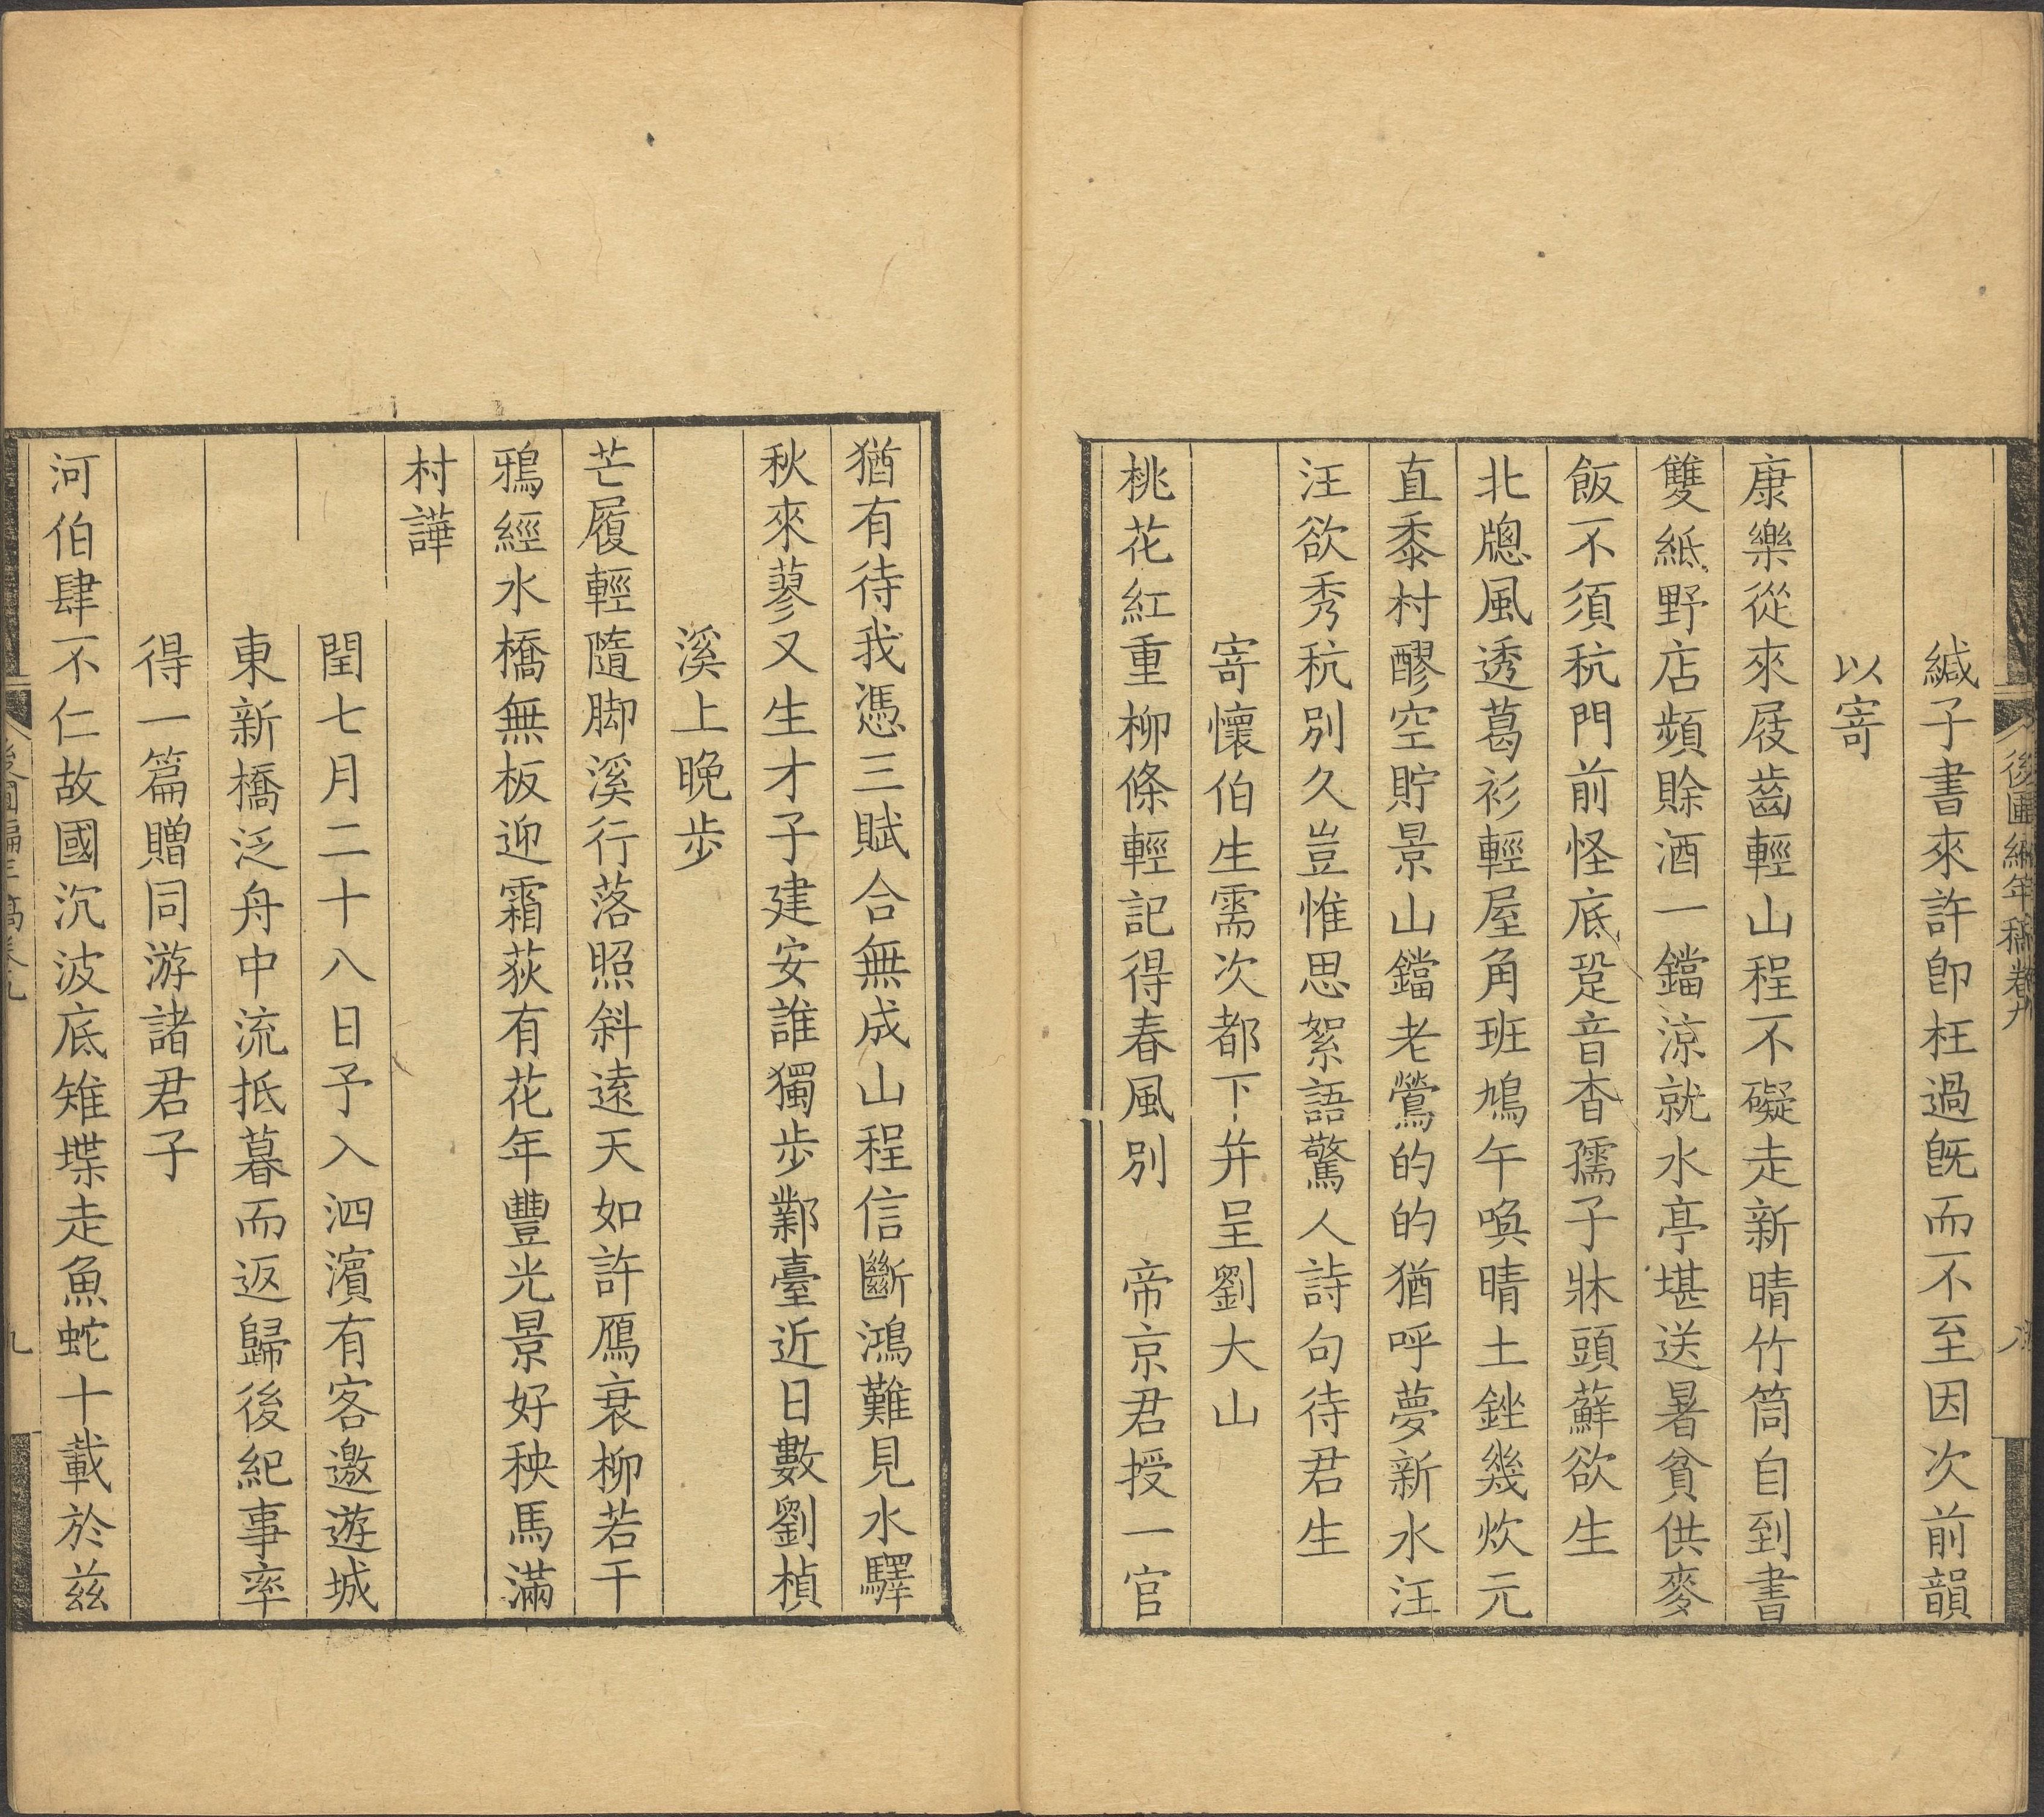 緘子書來許卽枉過旣而不至因次前韻
以寄
康樂從來屐齒輕山程不礙走新晴竹筒自到書
雙紙野店頻賒酒一鐺涼就水亭堪送暑貧供麥
飯不須秔門前怪底跫音杳孺子牀頭蘇欲生
北牕風透葛衫輕屋角班鳩午喚晴土銼幾炊元
直黍村醪空貯景山鐺老鶯的的猶呼夢新水汪
汪欲秀秔別久豈惟思絮語驚人詩句待君生
寄懷伯生需次都下并呈劉大山
桃花紅重柳條輕記得春風別　帝京君授一官
後圃編年稿卷九
八
猶有待我憑三賦合無成山程信斷鴻難見水驛
秋來蓼又生才子建安誰獨步鄴臺近日數劉楨
溪上晚步
芒履輕隨脚溪行落照斜遠天如許鴈衰柳若干
鴉經水橋無板迎霜荻有花年豐光景好秧馬滿
村譁
閏七月二十八日予入泗濱有客邀遊城
東新橋泛舟中流抵暮而返歸後紀事率
得一篇贈同游諸君子
河伯肆不仁故國沉波底雉堞走魚蛇十載於茲
九